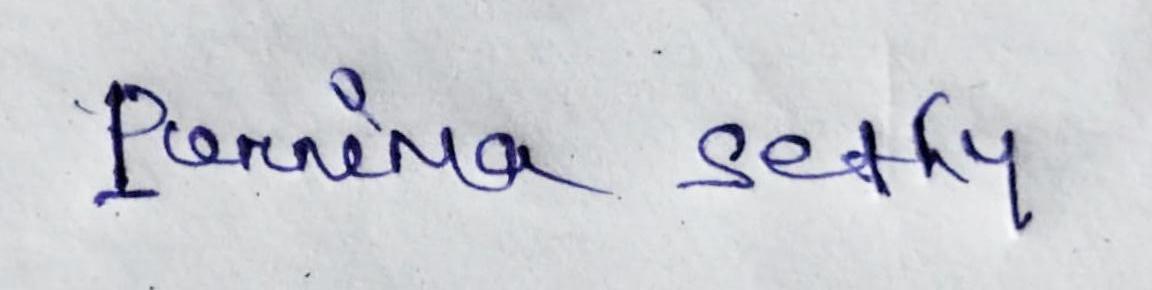 Purnima sethy